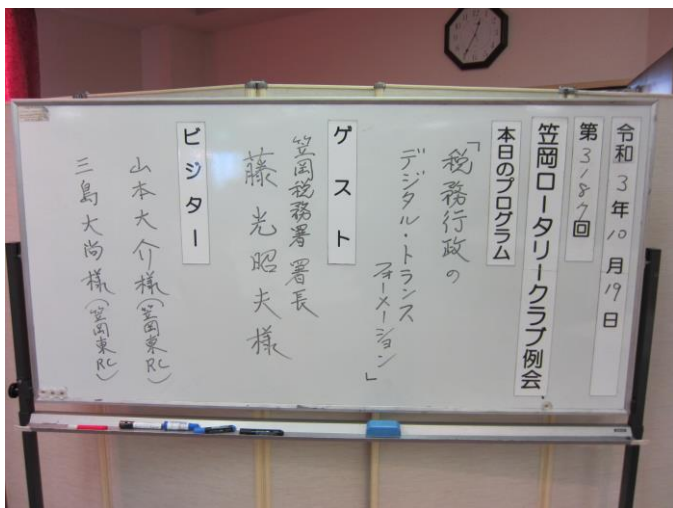 令和3年10月19日
第3187回
笠岡ロータリークラブ例会
本日のプログラム
「税務行政の
デジタル・トランス
フォーメーション」
ゲスト
笠岡税務署 署長
藤光昭夫様
ビジター
山本大介様(笠岡東RC)
三島大尚様(笠岡東RC)